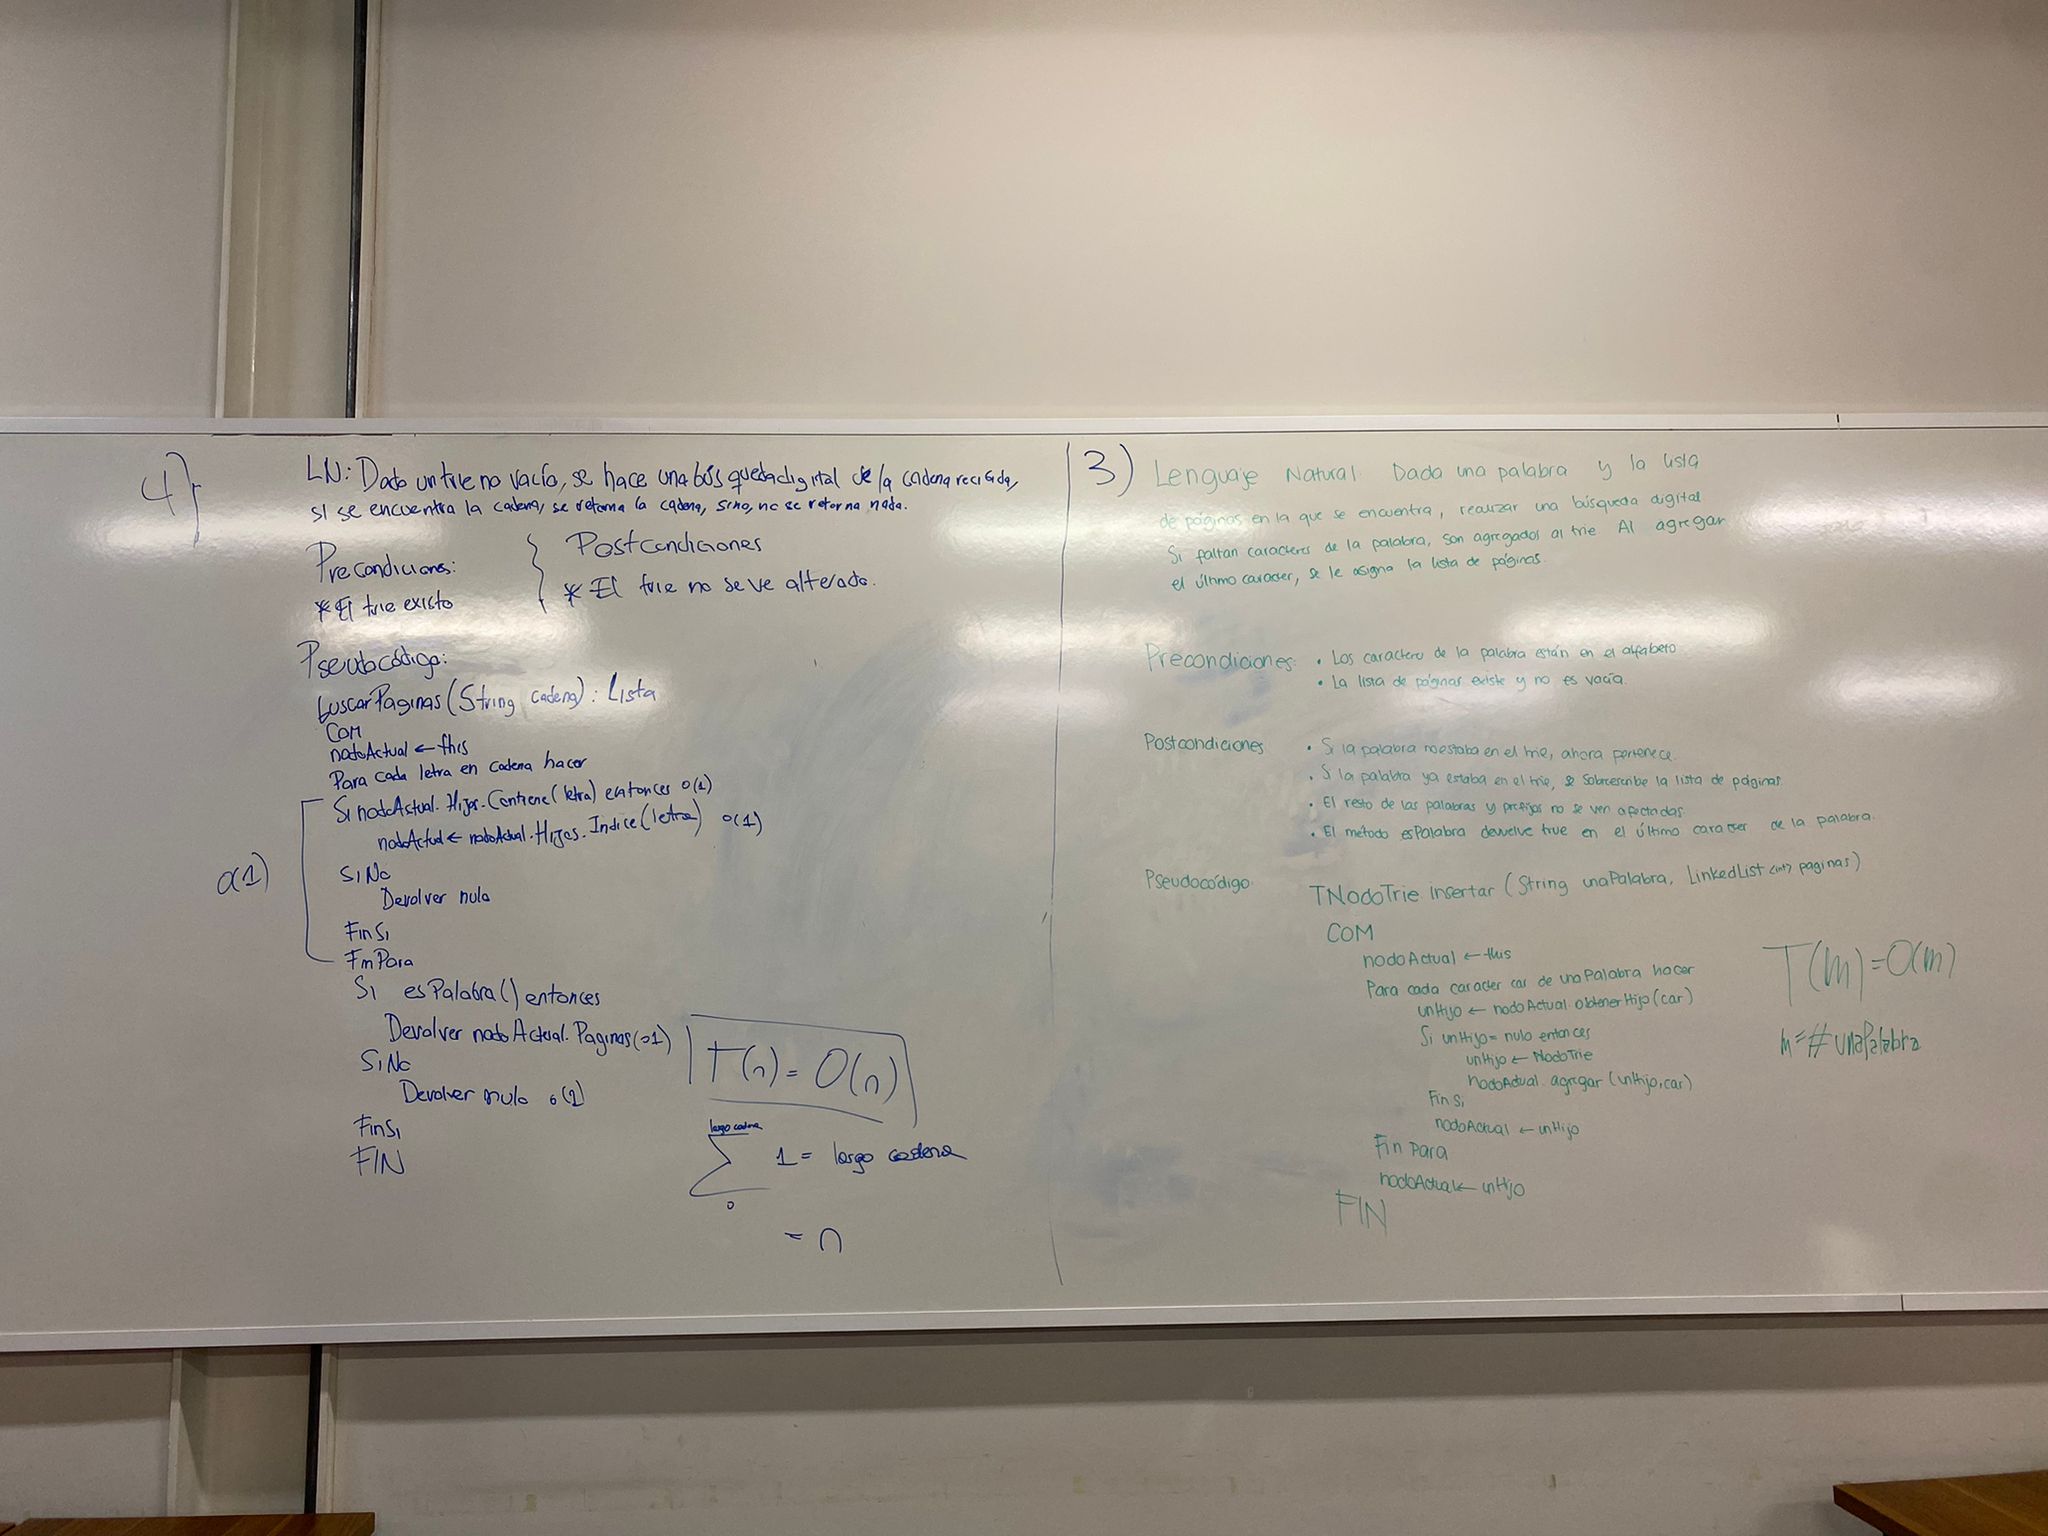 4)
LN: Dado un trie no vacío, se hace una búsqueda digital de la cadena recibida,
si se encuentra la cadena, se retorna la cadena, sino, no se retorna nada.
Precondiciones:
* El trie existe
Postcondiciones
* El trie no se ve alterado.
Pseudocódigo:
buscarPaginas(String cadena): Lista
COM
nodoActual ← this
Para cada letra en cadena hacer
Si nodoActual.Hijos.Contiene(letra) entonces o(1)
nodoActual ← nodoActual.Hijos.Indice(letra) o(1)
SiNo
Devolver nulo
FinSi
FinPara
o(1)
Si esPalabra() entonces
Devolver nodoActual.Paginas(o1)
SiNo
Devolver nulo o(1)
FinSi
FIN
T(n) = O(n)
largo cadena
∑ 1 = largo cadena
0
= n
3) Lenguaje Natural: Dada una palabra y la lista
de páginas en la que se encuentra, realizar una búsqueda digital
Si faltan caracteres de la palabra, son agregados al trie Al agregar
el último caracter, se le asigna la lista de páginas.
Precondiciones: • Los caracteres de la palabra están en el alfabeto
• La lista de páginas existe y no es vacía.
Postcondiciones • Si la palabra no estaba en el trie, ahora pertenece.
• Si la palabra ya estaba en el trie, se sobrescribe la lista de páginas
• El resto de las palabras y prefijos no se ven afectadas
• El método esPalabra devuelve true en el último caracter de la palabra.
Pseudocódigo. TNodoTrie insertar (String unaPalabra, LinkedList<int> paginas)
COM
nodoActual ← this
Para cada caracter car de unaPalabra hacer
unHijo ← nodoActual.obtenerHijo(car)
Si unHijo = nulo entonces
unHijo ← NodoTrie
nodoActual.agregar(unHijo,car)
Fin Si
nodoActual ← unHijo
Fin Para
nodoActual ← unHijo
FIN
T(m) = O(m)
m = # unaPalabra